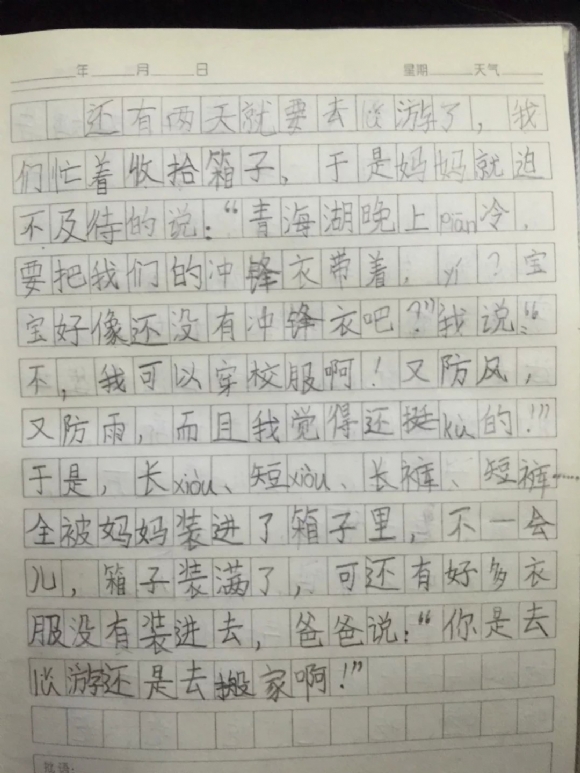 年 月 日 星期 天气
还有两天就要去旅游了，我
们忙着收拾箱子。于是妈妈就迫
不及待的说：“青海湖晚上piān冷，
要把我们的冲锋衣带着，yí？宝
宝好像还没有冲锋衣吧？”我说：“
不，我可以穿校服啊！又防风，
又防雨，而且我觉得还挺kù的！”
于是，长xiòu、短xiòu、长裤、短裤……
全被妈妈装进了箱子里，不一会
儿，箱子装满了，可还有好多衣
服没有装进去，爸爸说：“你是去
旅游还是去搬家啊！”